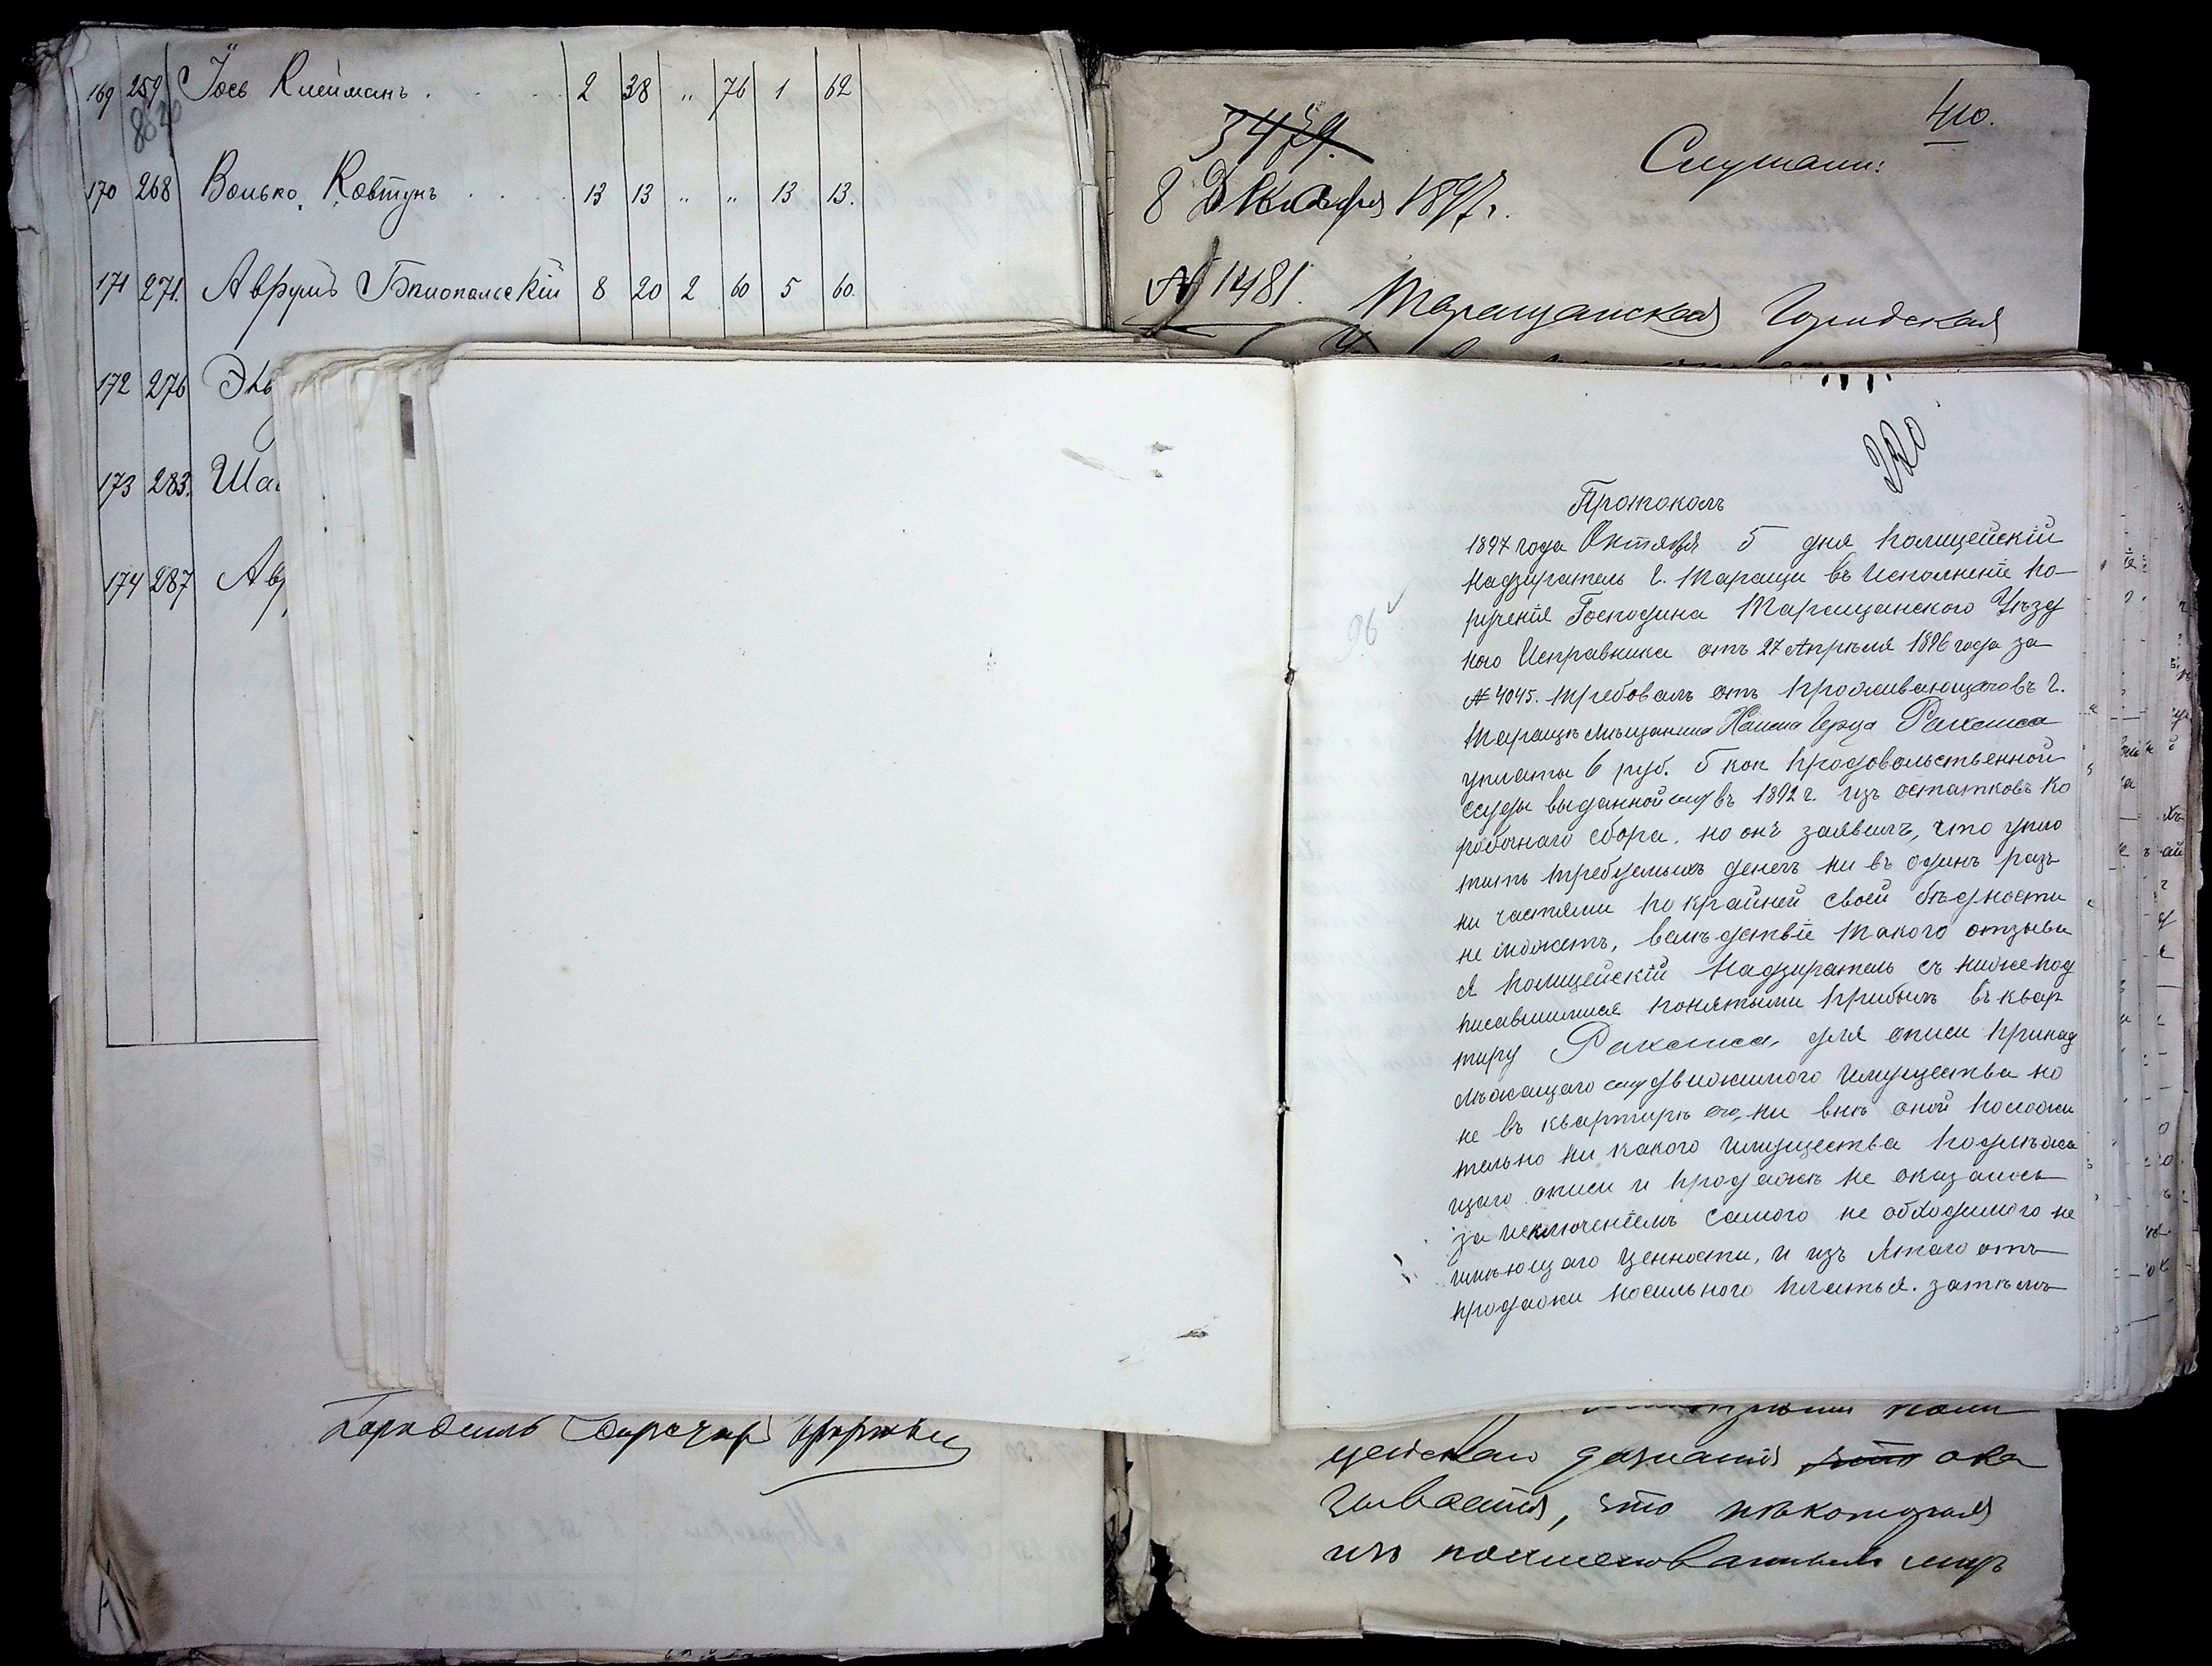 169 259 Іосъ Клейманъ . . . 2 38 „ 76 1 62
170 268 Волько Ковтунъ . . . 13 13 „ „ 13 13.
171 271. Аврумъ Бялопольскій 8 20 2 60 5 60.
172 276
173 283.
174 287
410.
Слушали:
8 Декабря 1897 г.
№ 1481. Таращанская Городская
320
Протоколъ
1897 года Октября 5 дня Полицейскій
Надзиратель г. Таращи въ исполненіе по-
рученія Господина Таращанскаго Уѣзд
наго Исправника отъ 27 Апрѣля 1896 года за
№ 4045. требовалъ отъ проживающаго въ г.
Таращѣ мѣщанина Хаима Герца Раклиса
уплаты 6 руб. 5 коп продовольственной
ссуды выданной ему въ 1892 г. изъ остатковъ ко
робочнаго сбора, но онъ заявилъ, что упла
тить требуемыхъ денегъ ни въ одинъ разъ
ни частями по крайней своей бѣдности
не можетъ, вслѣдствіе такого отзыва
я Полицейскій Надзиратель съ нижепод
писавшимися понятыми прибылъ въ квар
тиру Раклиса, для описи принад
лѣжащаго ему движимого имущества но
не въ квартирѣ его, ни внѣ оной положи
тельно ни какого имущества подлѣжа
щаго описи и продажѣ не оказалось
за исключеніемъ самого не обходимого не
имѣющаго ценности, и изъ ятаго отъ
продажи носильного платья. затѣмъ
цейскаго дознанія ока
зывается, что нѣкоторыя
изъ поименованныхъ лицъ